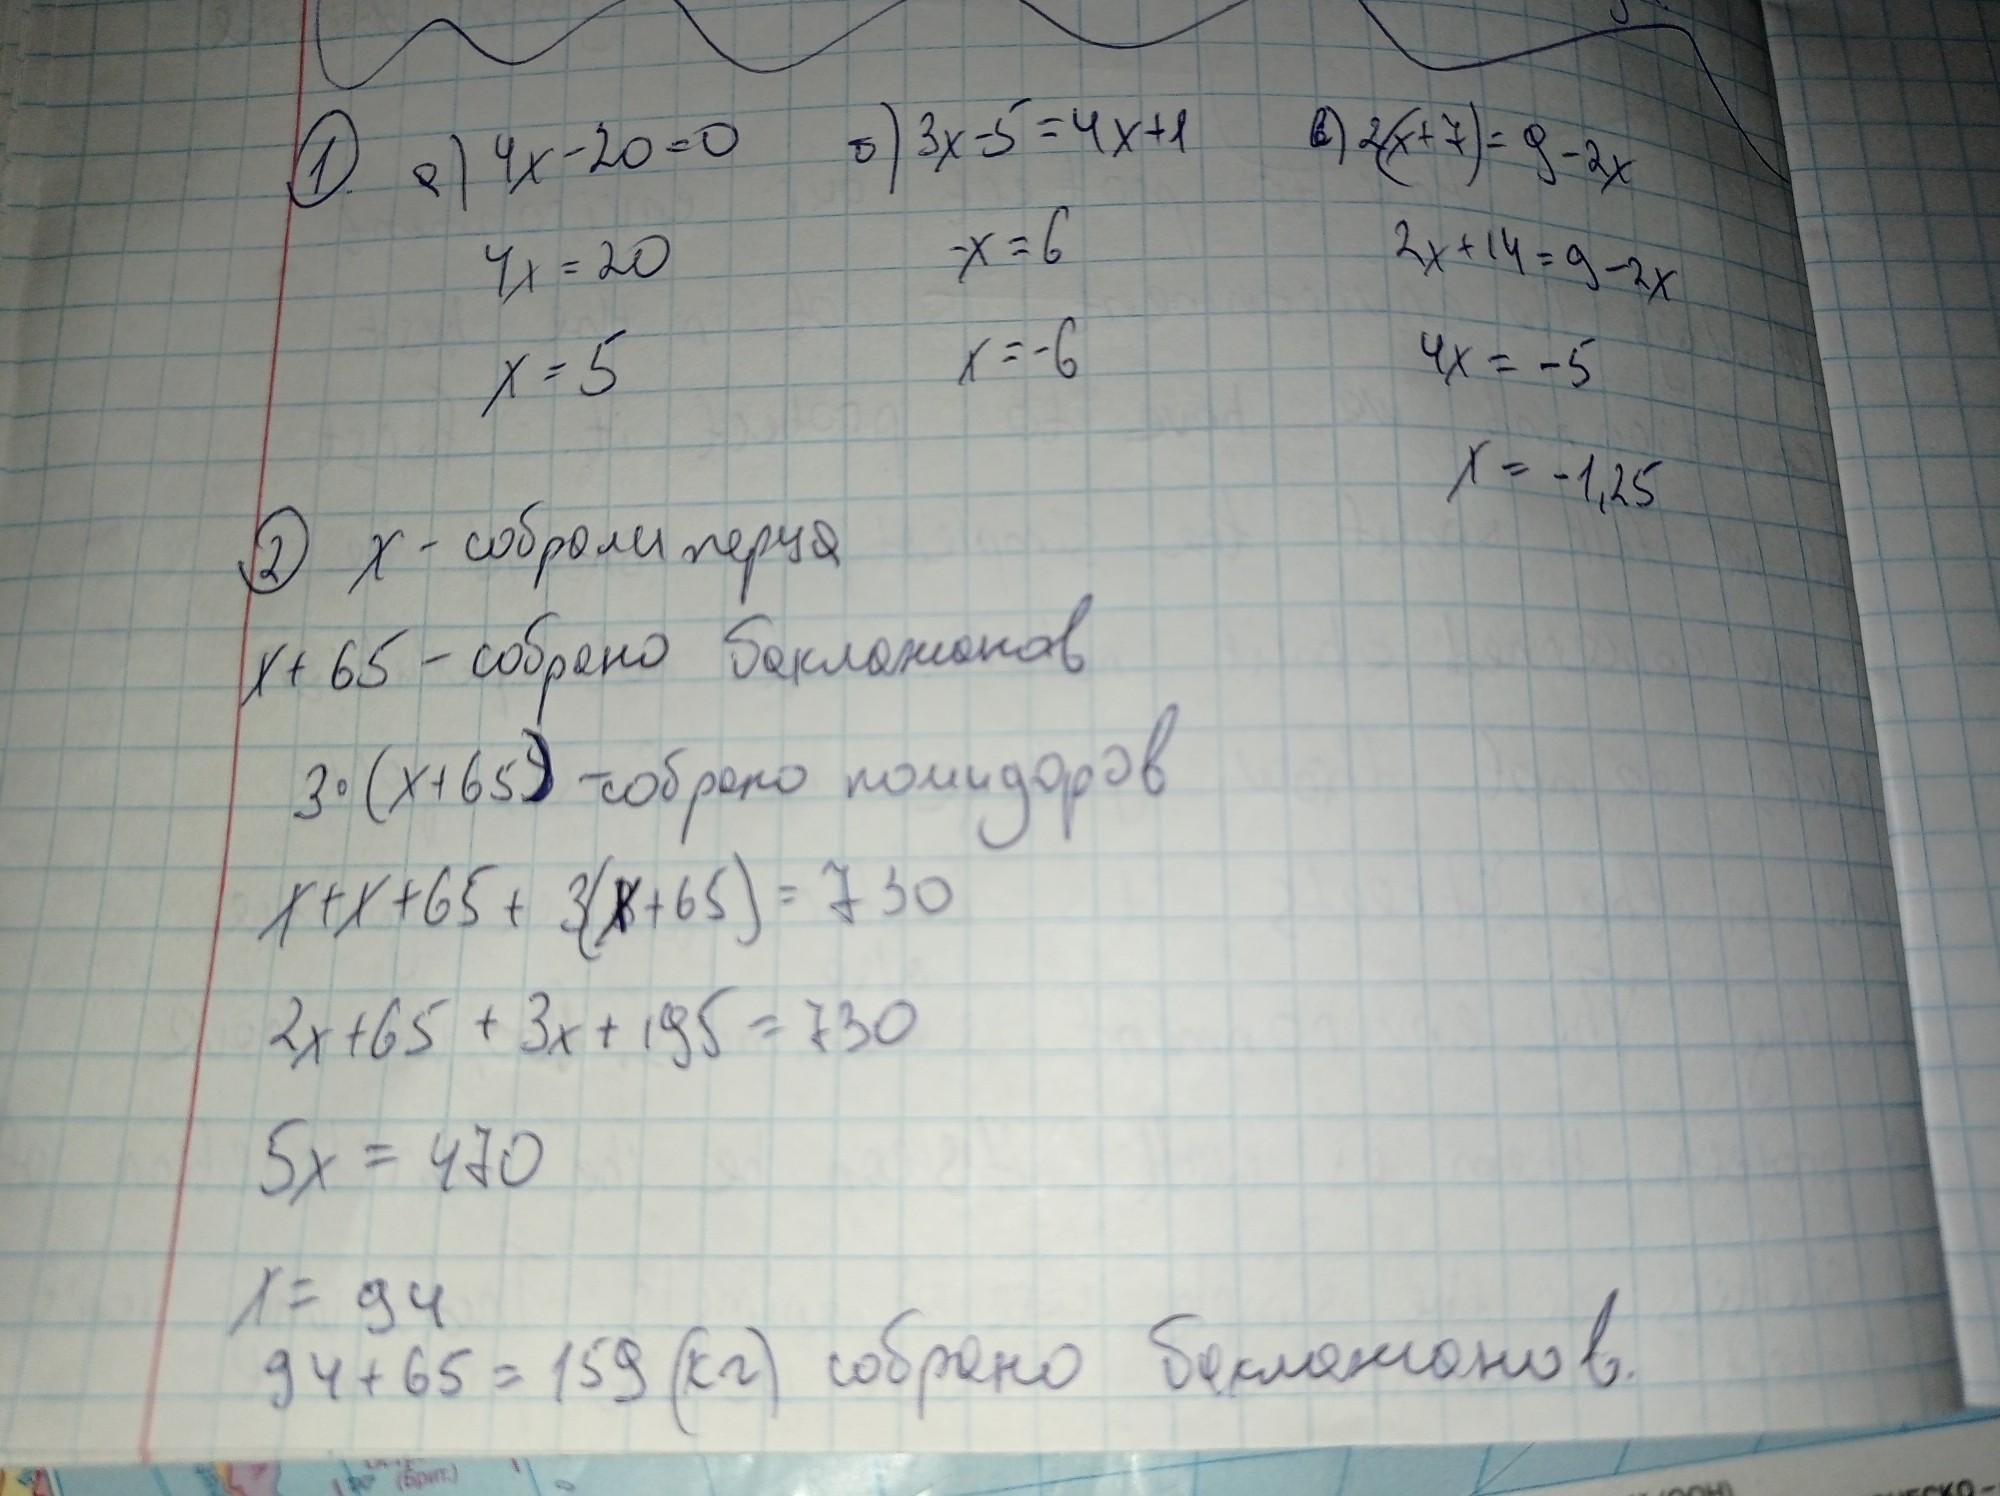 1. а) 4x-20=0 б) 3x-5=4x+1 в) 2(x+7)=9-2x
4x=20 -x=6 2x+14=9-2x
x=5 x=-6 4x=-5
x=-1,25
2) x - собрали перца
x+65 - собрано баклажанов
3·(x+65) - собрано помидоров
x+x+65+3(x+65)=730
2x+65+3x+195=730
5x=470
x=94
94+65=159 (кг) собрано баклажанов.
(Брит.)